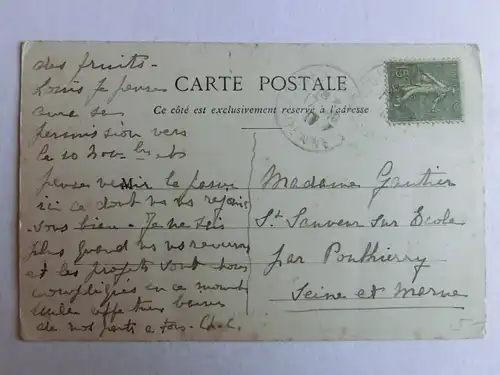 des fruits -
Louis je pense
sera en
permission vers
le 10 Nov.bre et
pense venir le passer
ici ce dont ns ns rejouis
-sons bien - Je ne sais
plus quand ns ns reverrons
et les projets sont tous
compliqués en ce moment
Mille affectueux baisers
de nos parts a tous. Ch. C.
CARTE POSTALE
Ce côté est exclusivement réservé à l'adresse
Madame Gautier
St Sauveur sur Ecole
par Ponthierry
Seine et Marne
15